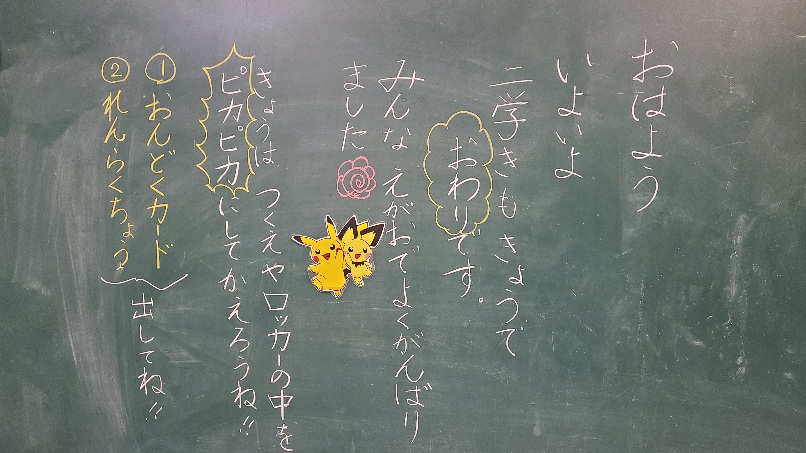 おはよう
いよいよ
二学きも きょうで
おわりです。
みんな えがおでよくがんばり
ました
きょうは つくえやロッカーの中を
ピカピカにしてかえろうね!!
① おんどくカード
② れんらくちょう
出してね!!